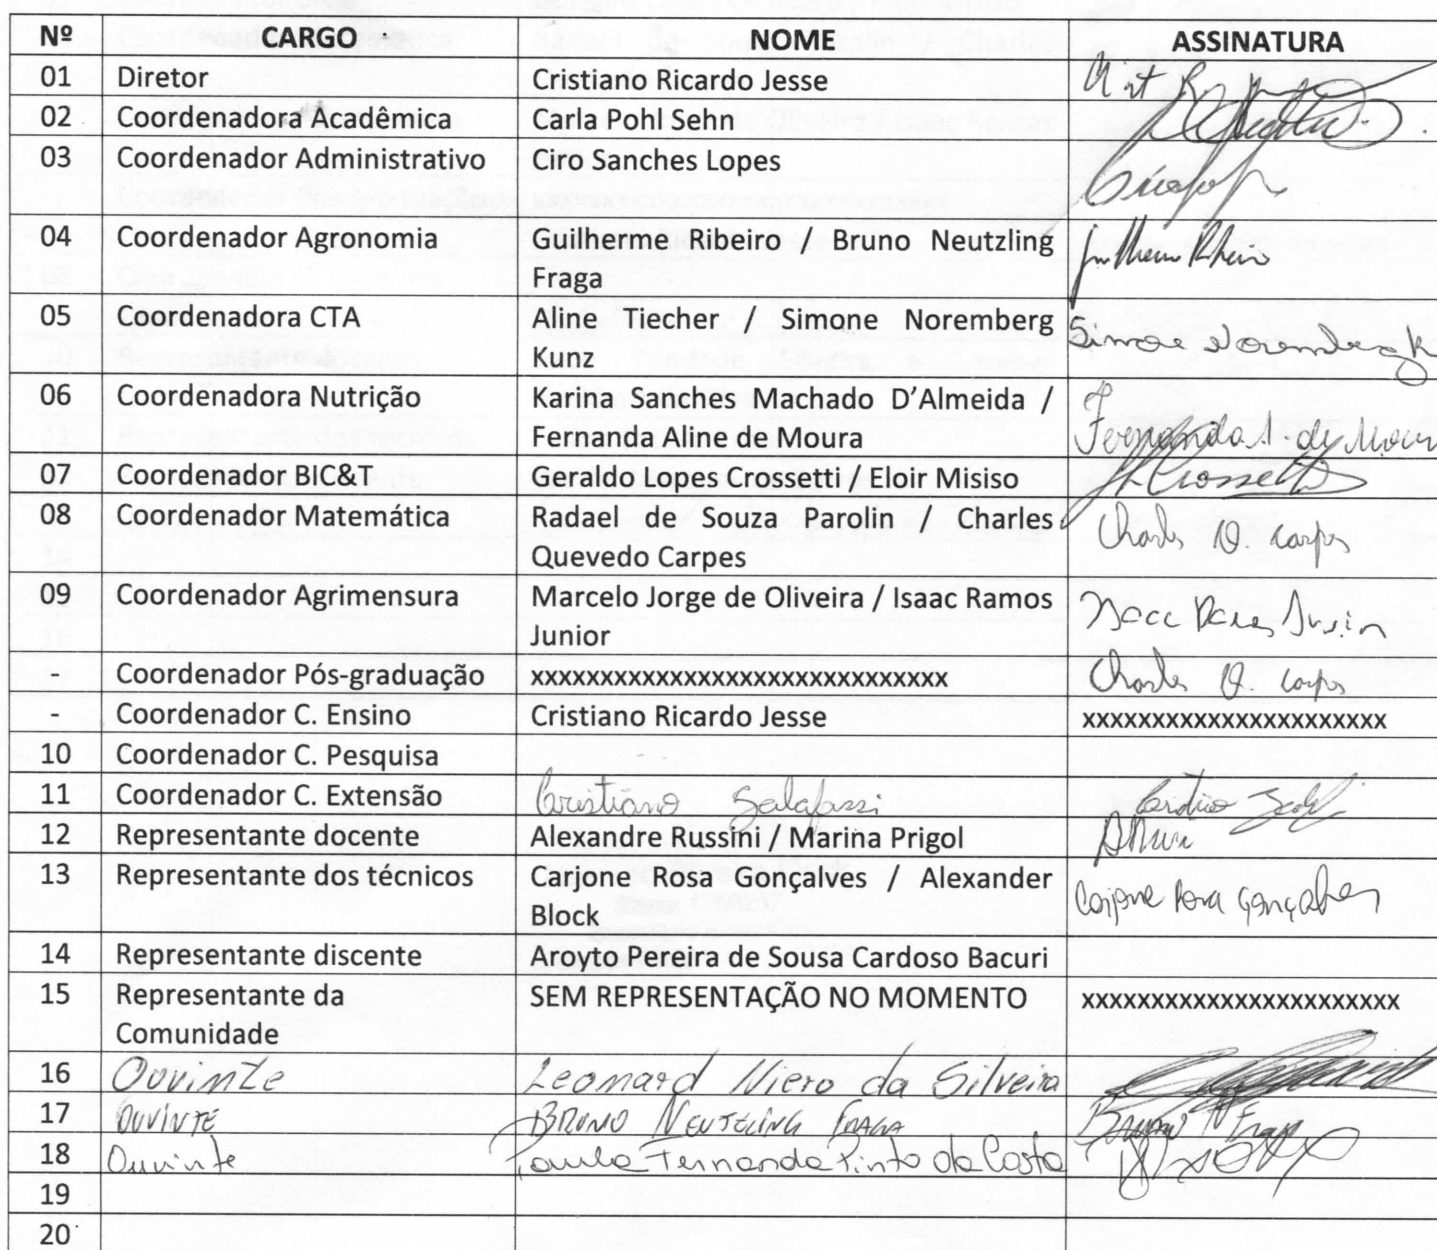 Nº CARGO NOME ASSINATURA
01 Diretor Cristiano Ricardo Jesse
02 Coordenadora Acadêmica Carla Pohl Sehn
03 Coordenador Administrativo Ciro Sanches Lopes
04 Coordenador Agronomia Guilherme Ribeiro / Bruno Neutzling Guilherme Ribeiro
Fraga
05 Coordenadora CTA Aline Tiecher / Simone Noremberg Simone Noremberg K
Kunz
06 Coordenadora Nutrição Karina Sanches Machado D'Almeida /
Fernanda Aline de Moura Fernanda A. de Mour
07 Coordenador BIC&T Geraldo Lopes Crossetti / Eloir Misiso Crossetti
08 Coordenador Matemática Radael de Souza Parolin / Charles Charles Q. Carpes
Quevedo Carpes
09 Coordenador Agrimensura Marcelo Jorge de Oliveira / Isaac Ramos Isaac Ramos Junior
Junior
- Coordenador Pós-graduação xxxxxxxxxxxxxxxxxxxxxxxxxxxxxx Charles Q. Carpes
- Coordenador C. Ensino Cristiano Ricardo Jesse xxxxxxxxxxxxxxxxxxxxxx
10 Coordenador C. Pesquisa
11 Coordenador C. Extensão Cristiano Galafassi
12 Representante docente Alexandre Russini / Marina Prigol
13 Representante dos técnicos Carjone Rosa Gonçalves / Alexander Carjone Rosa Gonçalves
Block
14 Representante discente Aroyto Pereira de Sousa Cardoso Bacuri
15 Representante da SEM REPRESENTAÇÃO NO MOMENTO xxxxxxxxxxxxxxxxxxxxxxx
Comunidade
16 Ouvinte Leonard Niero da Silveira
17 OUVINTE BRUNO NEUTZLING FRAGA Bruno N Fraga
18 Ouvinte Paula Fernanda Pinto da Costa
19
20